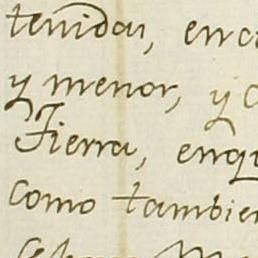 tenidas,
y menor, y
Tierra, enqu
como tambien